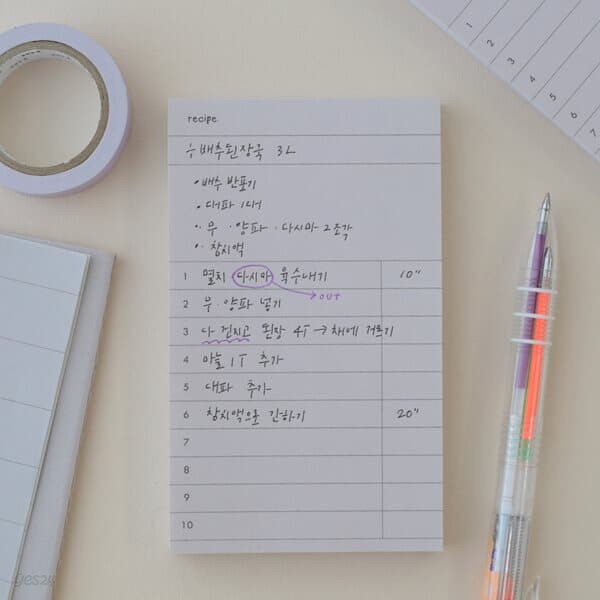 recipe.
배추된장국 3L
• 배추 반포기
• 대파 1대
• 무 · 양파 · 다시마 2조각
• 참치액
1 멸치 다시마 육수내기 10"
→ out
2 무 · 양파 넣기
3 다 건지고 된장 4T → 채에 거르기
4 마늘 1T 추가
5 대파 추가
6 참치액으로 간하기 20"
7
8
9
10
1
2
3
4
5
6
7
yes24